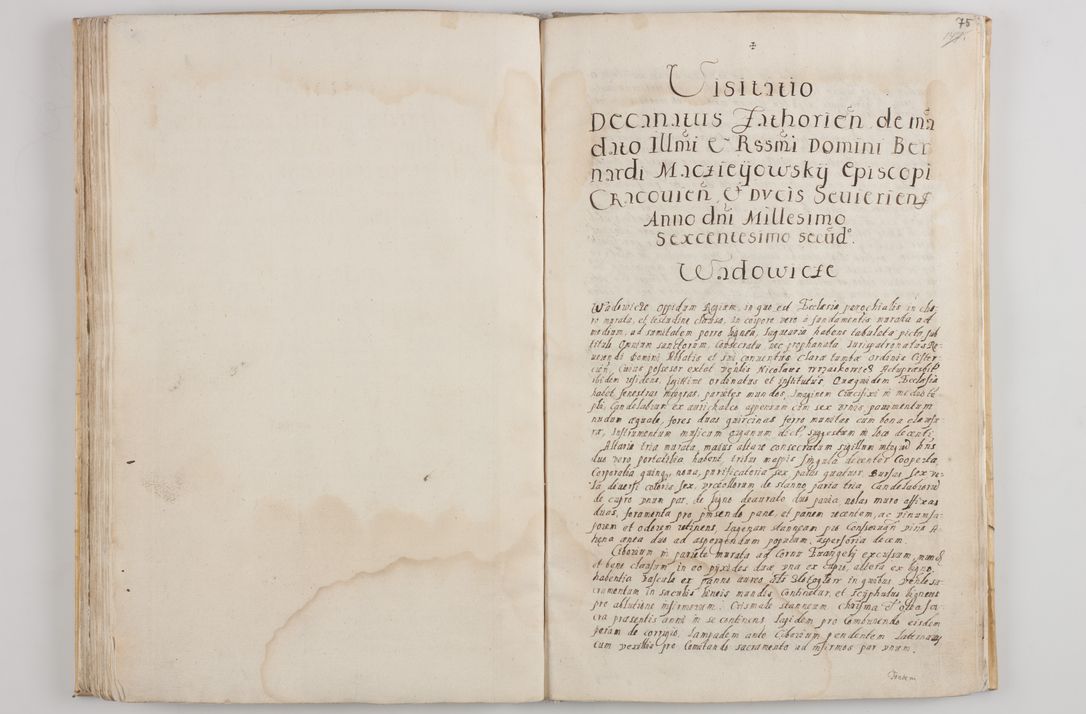 75
Visitatio
Decanatus Zathorień de mā
dato Illmi & Rssmi Domini Ber
nardi Maczieÿowskÿ Episcopi
Cracovień & Ducis Severien
Anno dñi Millesimo
Sexcentesimo secūdo.
Wadowicze
Wadowicze oppidum Regium, in quo est Ecclesia parochialis in cho
ro murata, et testudine clausa, in corpore vero a fundamentis murata ad
medium, ad summitatem porro lignea, laquearia habens tabulata picta, sub
titulo Omnium Sanctorum, Consecrata, nec prophanata Iurispatronatus Re
uerendi Domini Abbatis et sui conuentus Clarae tumbae ordinis Cister
cien, cuius possesor extat Nicolaus
ibidem residens, legittime ordinatus et institutus Quaequidem Ecclesia
habet fenestras integras, parietes mundos, Imaginem Crucifixi in medio te
pli, Candelabrum ex aurichalco appensum cum sex pauimentum
nudum aequale, fores duas quercinas ferro munitas cum bona clausu
ra, Instrumentum musicum organum dict suggestum in loco decenti.
Altaria tria murata, maius altare consecratum sigillum integrum hns
duo vero portatilia habent, tribus mappis singula decenter cooperta,
Corporalia quinq nona, purificatoria sex pallas quatuor Bursas sex ve
la diuersi coloris sex, vrceollorum de stanno paria tria Candelabrorū
de cupro vnum par, de ligno deaurato duo paria nolas muro affixas
duas, foramenta pro pane, et panem recentem, ac vinum sa
porem et odorem retinens, lagenam stanneam pro
hena aenea duo ad aspergendum populum, aspersoria decem.
Ciborium in pariete murata ad Cornu Euangelij excussum, mundū
et bene clausum in eo pyxides duae vna ex cupro, altera ex ligno,
habentia vascula ex panno aureo in quibus Venle sa
cramentum in sacculis lineis mundis Continetur, et scyphulus ligneus
pro ablutione infirmorum. Crismale stanneum chrisma et olea sa
cra praesentis anni in se continens lapidem pro Comburendo eisdem
peram de corrigio, lampadem ante Ciborium pendentem laternam
cum vexillis pro Comitando sacramento ad infirmos par vnum.